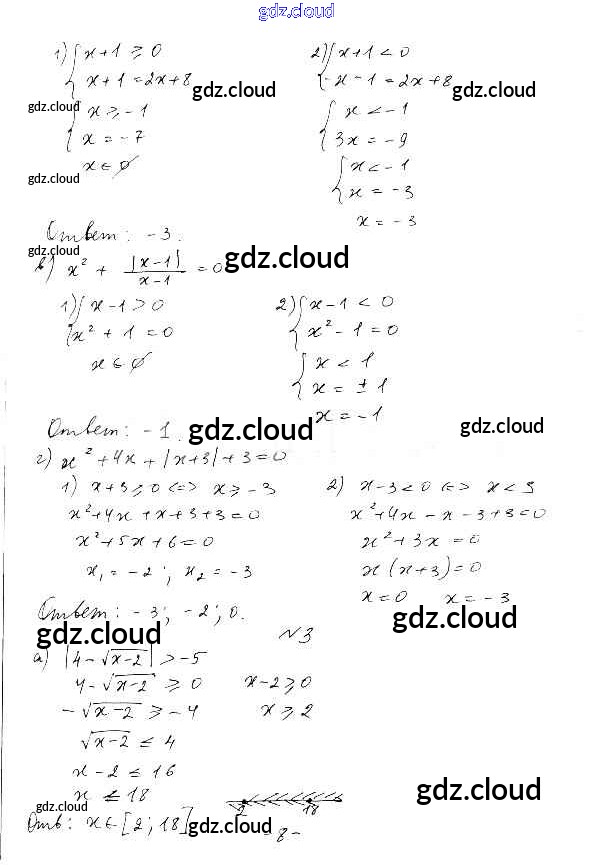 gdz.cloud
1) { x + 1 ≥ 0
x + 1 = 2x + 8
gdz.cloud
{ x ≥ -1
x = -7
x ∈ ∅
gdz.cloud
gdz.cloud
2) { x + 1 < 0
-x - 1 = 2x + 8
gdz.cloud
{ x < -1
3x = -9
{ x < -1
x = -3
x = -3
Ответ: -3.
gdz.cloud
в) x² + |x-1| / x-1 = 0
gdz.cloud
1) { x - 1 > 0
x² + 1 = 0
x ∈ ∅
2) { x - 1 < 0
x² - 1 = 0
{ x < 1
x = ± 1
x = -1
Ответ: -1.
gdz.cloud
gdz.cloud
г) x² + 4x + |x+3| + 3 = 0
1) x + 3 ≥ 0 <=> x ≥ -3
x² + 4x + x + 3 + 3 = 0
x² + 5x + 6 = 0
x₁ = -2; x₂ = -3
2) x - 3 < 0 <=> x < 3
x² + 4x - x - 3 + 3 = 0
x² + 3x = 0
x (x+3) = 0
x = 0 x = -3
Ответ: -3; -2; 0.
gdz.cloud
gdz.cloud
N3
а) |4 - √x-2| > -5
4 - √x-2 ≥ 0 x - 2 ≥ 0
-√x-2 ≥ -4 x ≥ 2
√x-2 ≤ 4
x - 2 ≤ 16
x ≤ 18
2 18
gdz.cloud
gdz.cloud
Отв: x ∈ [2; 18]
gdz.cloud
- 8 -